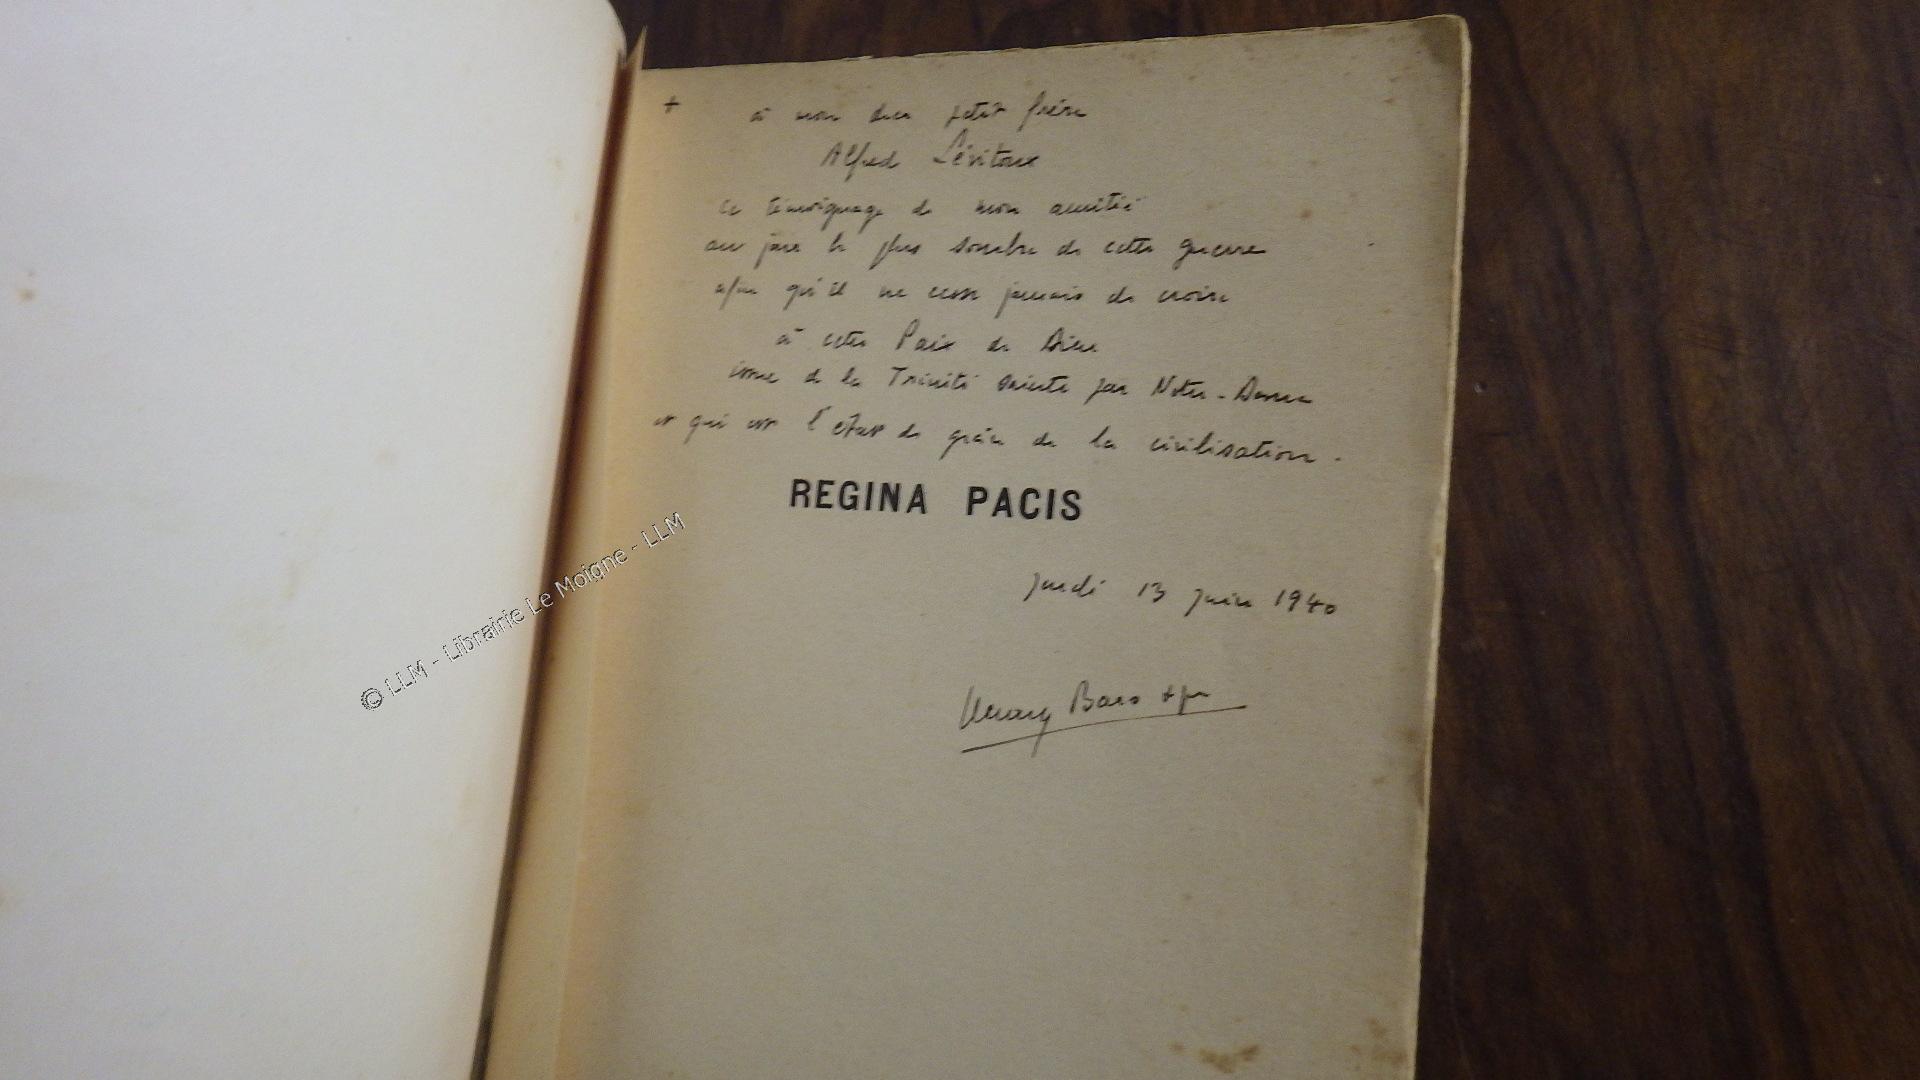 + à mon cher petit frère
Alfred Lévitoux
ce témoignage de mon amitié
au jour le plus sombre de cette guerre
afin qu'il ne cesse jamais de croire
à cette Paix de Dieu
issue de la Trinité sainte par Notre-Dame
et qui est l'état de grâce de la civilisation.
REGINA PACIS
jeudi 13 juin 1940
Henry Bars
© LLM - Librairie Le Moigne - LLM